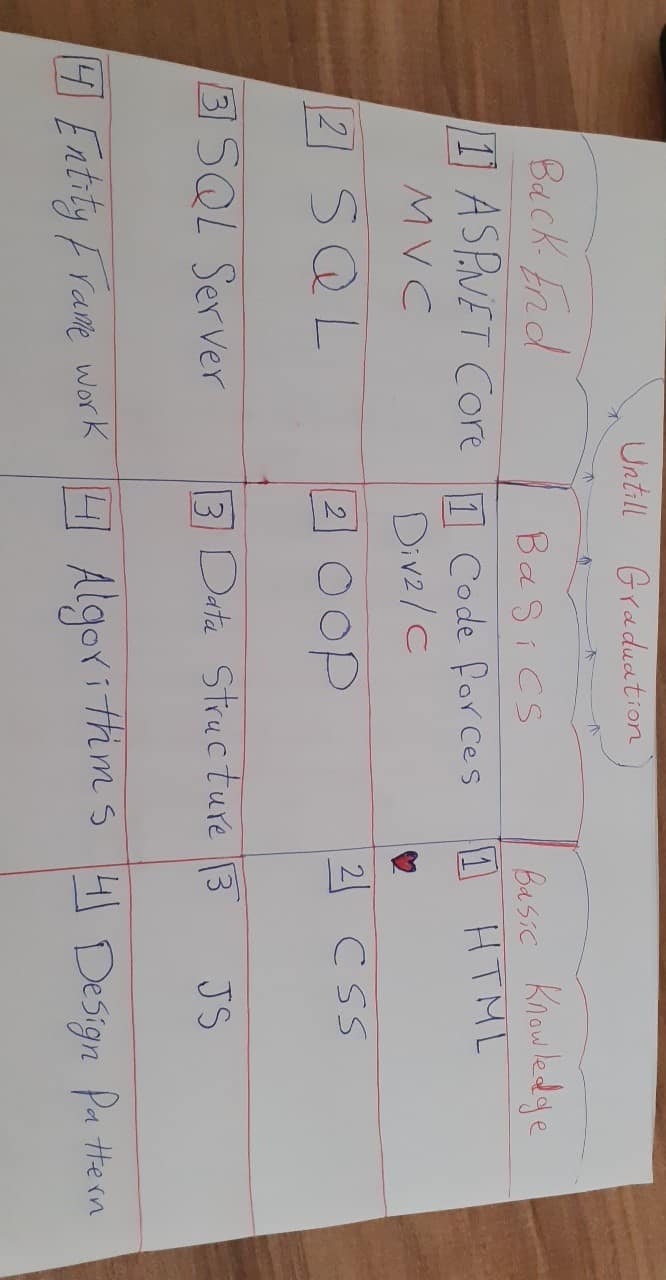 Untill Graduation
Back-End
Basics
Basic Knowledge
1 ASP.NET Core
MVC
1 Code forces
Div2/C
1 HTML
2 SQL
2 OOP
2 CSS
3 SQL Server
3 Data Structure
3 JS
4 Entity Frame work
4 Algorithms
4 Design Pattern